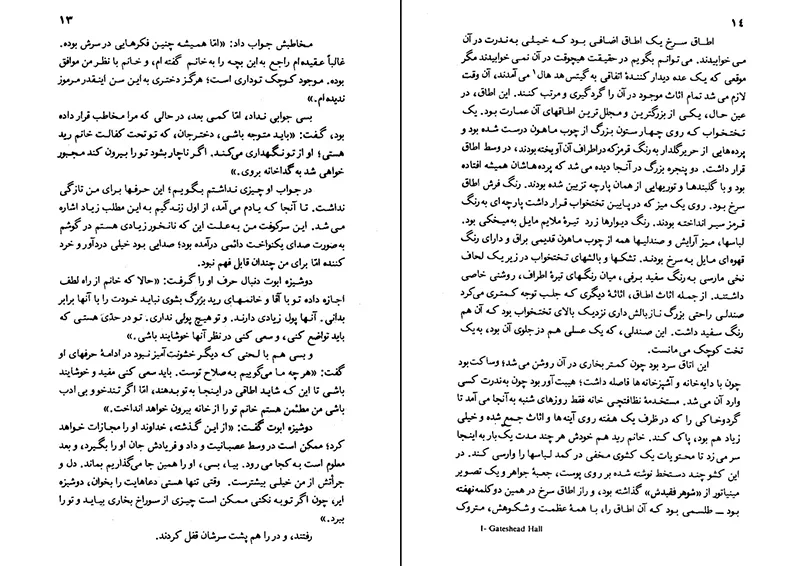 ۱۳
مخاطبش جواب داد: «امّا همیشه چنین فکرهایی در سرش بوده.
غالباً عقیده‌ام راجع به این بچه را به خانم گفته‌ام، و خانم با نظر من موافق
بوده. موجود کوچک توداری است؛ هرگز دختری به این سن اینقدر مرموز
ندیده‌ام.»
بسی جوابی نداد، امّا کمی بعد، در حالی که مرا مخاطب قرار داده
بود، گفت: «باید متوجه باشی، دخترجان، که تو تحت کفالت خانم رید
هستی؛ او از تو نگهداری می‌کند. اگر ناچار بشود تو را بیرون کند مجبور
خواهی شد به گداخانه بروی.»
در جواب او چیزی نداشتم بگویم؛ این حرفها برای من تازگی
نداشت. تا آنجا که یادم می‌آمد، از اول زندگیم به این مطلب زیاد اشاره
می‌شد. این سرکوفت من به علت این که نانخور زیادی هستم در گوشم
به صورت صدای یکنواخت دائمی درآمده بود؛ صدایی بود خیلی دردآور و خرد
کننده امّا برای من چندان قابل فهم نبود.
دوشیزه ابوت دنبال حرف او را گرفت: «حالا که خانم از راه لطف
اجازه داده تو با آقا و خانمهای رید بزرگ بشوی نباید خودت را با آنها برابر
بدانی. آنها پول زیادی دارند. و تو هیچ پولی نداری. تو در حدّی هستی که
باید تواضع کنی، و سعی کنی در نظر آنها خوشایند باشی.»
و بسی هم با لحنی که دیگر خشونت‌آمیز نبود در ادامهٔ حرفهای او
گفت: «هرچه ما می‌گوییم به صلاح توست. باید سعی کنی مفید و خوشایند
باشی تا این که شاید اطاقی در اینجا به تو بدهند، امّا اگر تندخو و بی ادب
باشی من مطئمن هستم خانم تو را از خانه بیرون خواهد انداخت.»
دوشیزه ابوت گفت: «از این گذشته، خداوند او را مجازات خواهد
کرد؛ ممکن است در وسط عصبانیت و داد و فریادش جان او را بگیرد، و بعد
معلوم است به کجا می‌رود. بیا، بسی، او را همین جا می‌گذاریم بماند. دل و
جرأتش از من خیلی بیشترست. وقتی تنها هستی دعاهایت را بخوان، دوشیزه
ایر، چون اگر توبه نکنی ممکن است چیزی از سوراخ بخاری بیاید و تو را
ببرد.»
رفتند، و در را هم پشت سرشان قفل کردند.
۱٤
اطاق سرخ یک اطاق اضافی بود که خیلی به ندرت در آن
می‌خوابیدند. می‌توانم بگویم در حقیقت هیچوقت در آن نمی‌خوابیدند مگر
موقعی که یک عده دیدار کنندهٔ اتفاقی به گیتس‌هد هال۱ می‌آمدند، آن وقت
لازم می‌شد تمام اثاث موجود در آن را گردگیری و مرتب کنند. این اطاق، در
عین حال، یکی از بزرگترین و مجلل‌ترین اطاقهای آن عمارت بود. یک
تختخواب که روی چهار ستون بزرگ از چوب ماهون درست شده بود و
پرده‌هایی از حریر گلدار به رنگ قرمز که در اطراف آن آویخته بودند، در وسط اطاق
قرار داشت. دو پنجره بزرگ در آنجا دیده می‌شد که پرده‌هاشان همیشه افتاده
بود و با گلبندها و توریهایی از همان پارچه تزیین شده بودند. رنگ فرش اطاق
سرخ بود. روی یک میز که در پایین تختخواب قرار داشت پارچه‌ای به رنگ
قرمز سیر انداخته بودند. رنگ دیوارها زرد تیرهٔ ملایم مایل به میخکی بود.
لباسها، میز آرایش و صندلیها همه از چوب ماهون قدیمی براق و دارای رنگ
قهوه‌ای مایل به سرخ بودند. تشکها و بالشهای تختخواب در زیر یک لحاف
نخی مارسی به رنگ سفید برفی، میان رنگهای تیرهٔ اطراف، روشنی خاصی
داشتند. از جمله اثاث اطاق، اثاثهٔ دیگری که جلب توجه کمتری می‌کرد
صندلی راحتی بزرگ نازبالش‌داری نزدیک بالای تختخواب بود که آن هم
رنگ سفید داشت. این صندلی، که یک عسلی هم در جلوی آن بود، به یک
تخت کوچک می‌مانست.
این اتاق سرد بود چون کمتر بخاری در آن روشن می‌شد؛ و ساکت بود
چون با دایه‌خانه و آشپزخانه‌ها فاصله داشت؛ هیبت‌آور بود چون به ندرت کسی
وارد آن می‌شد. مستخدمهٔ نظافتچی خانه فقط روزهای شنبه به آنجا می‌آمد تا
گردوخاکی را که در ظرف یک هفته روی آینه‌ها و اثاث جمع شده و خیلی
زیاد هم بود، پاک کند. خانم رید هم خودش هر چند مدت یک بار به اینجا
سر می‌زد تا محتویات یک کشوی مخفی در کمد لباسها را وارسی کند. در
این کشو چند دستخط نوشته شده بر روی پوست، جعبهٔ جواهر و یک تصویر
مینیاتور از «شوهر فقیدش» گذاشته بود، و راز اطاق سرخ در همین دو کلمه نهفته
بود — طلسمی بود که آن اطاق را، با همهٔ عظمت و شکوهش، متروک
1- Gateshead Hall